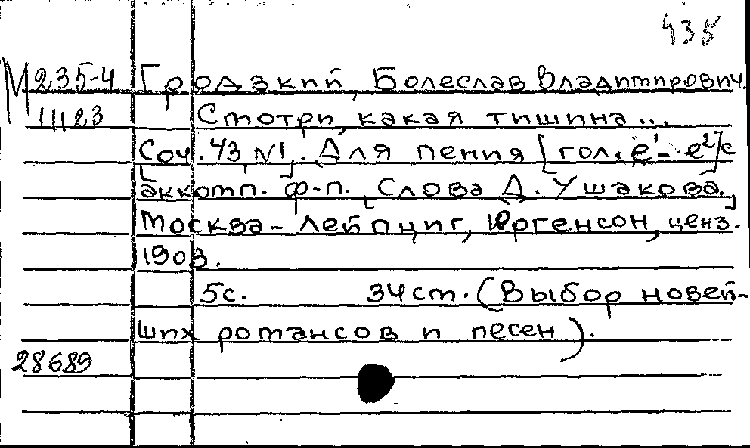 438
М 235-4 Гродзкий, Болеслав Владимирович.
11123 Смотри, какая тишина...
Соч. 43 №1. Для пения [гол. e¹- e²] с
аккомп. ф-п. [Слова Д. Ушакова.]
Москва-Лейпциг, Юргенсон, ценз.
1903.
5с. 34см. (Выбор новей-
ших романсов и песен).
28689